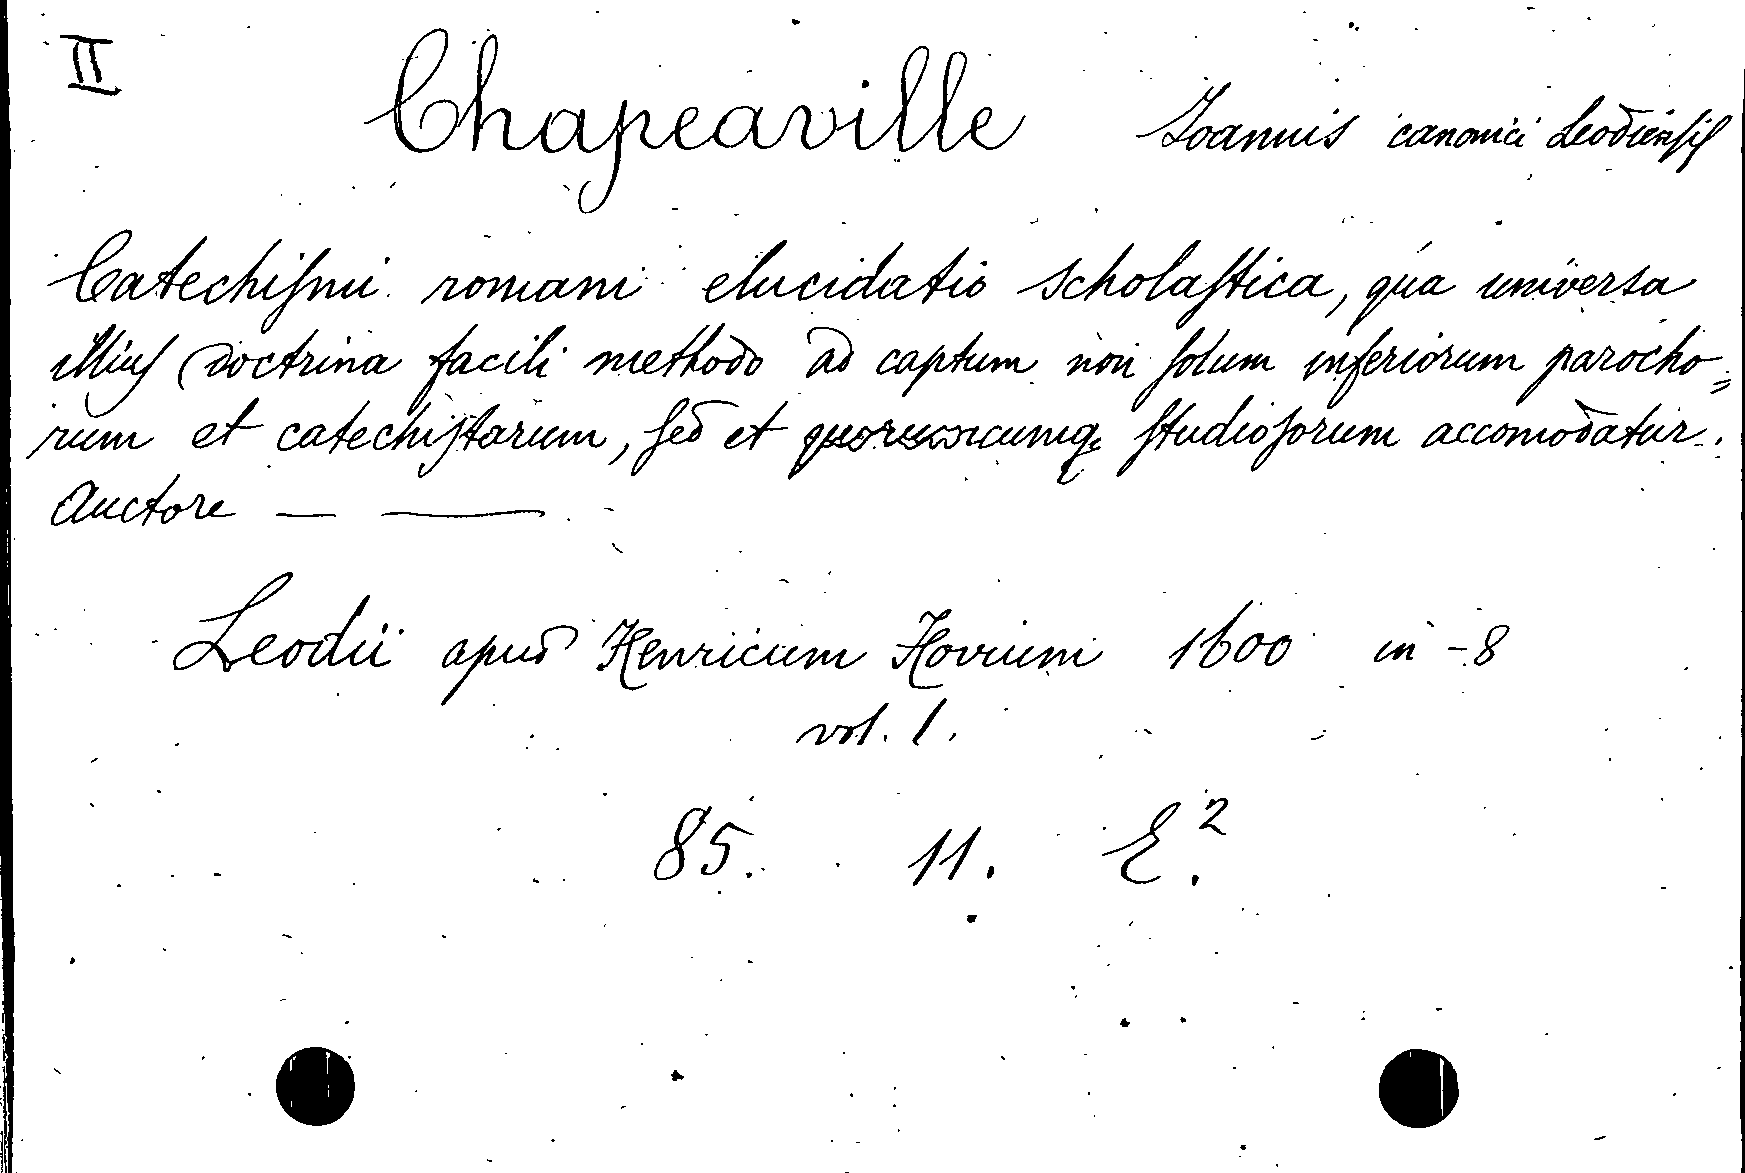 II
Chapeaville Joannis canonici Leodiensis
Catechismi romani elucidatio scholastica, qua universa
illius doctrina facili methodo ad captum non solum inferiorum parocho=
rum et catechistarum, sed et quorumcumq; studiosorum accomodatur.
Auctore — —
Leodii apud Henricum Hovium 1600 in-8
vol. 1.
85. 11. E².